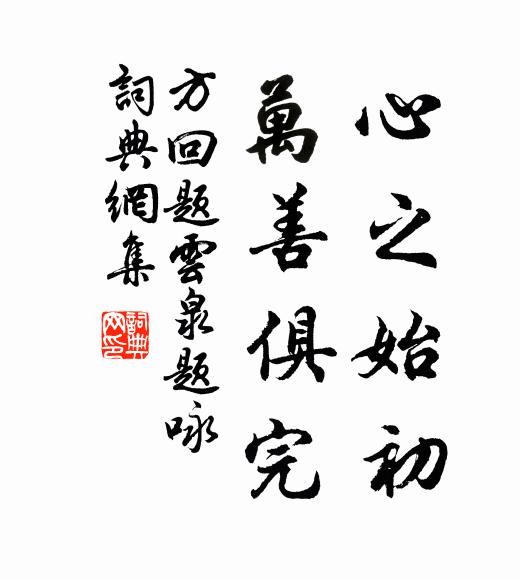 心之始初
萬善俱完
方回題雲泉題咏
詞典網集
詞典網印